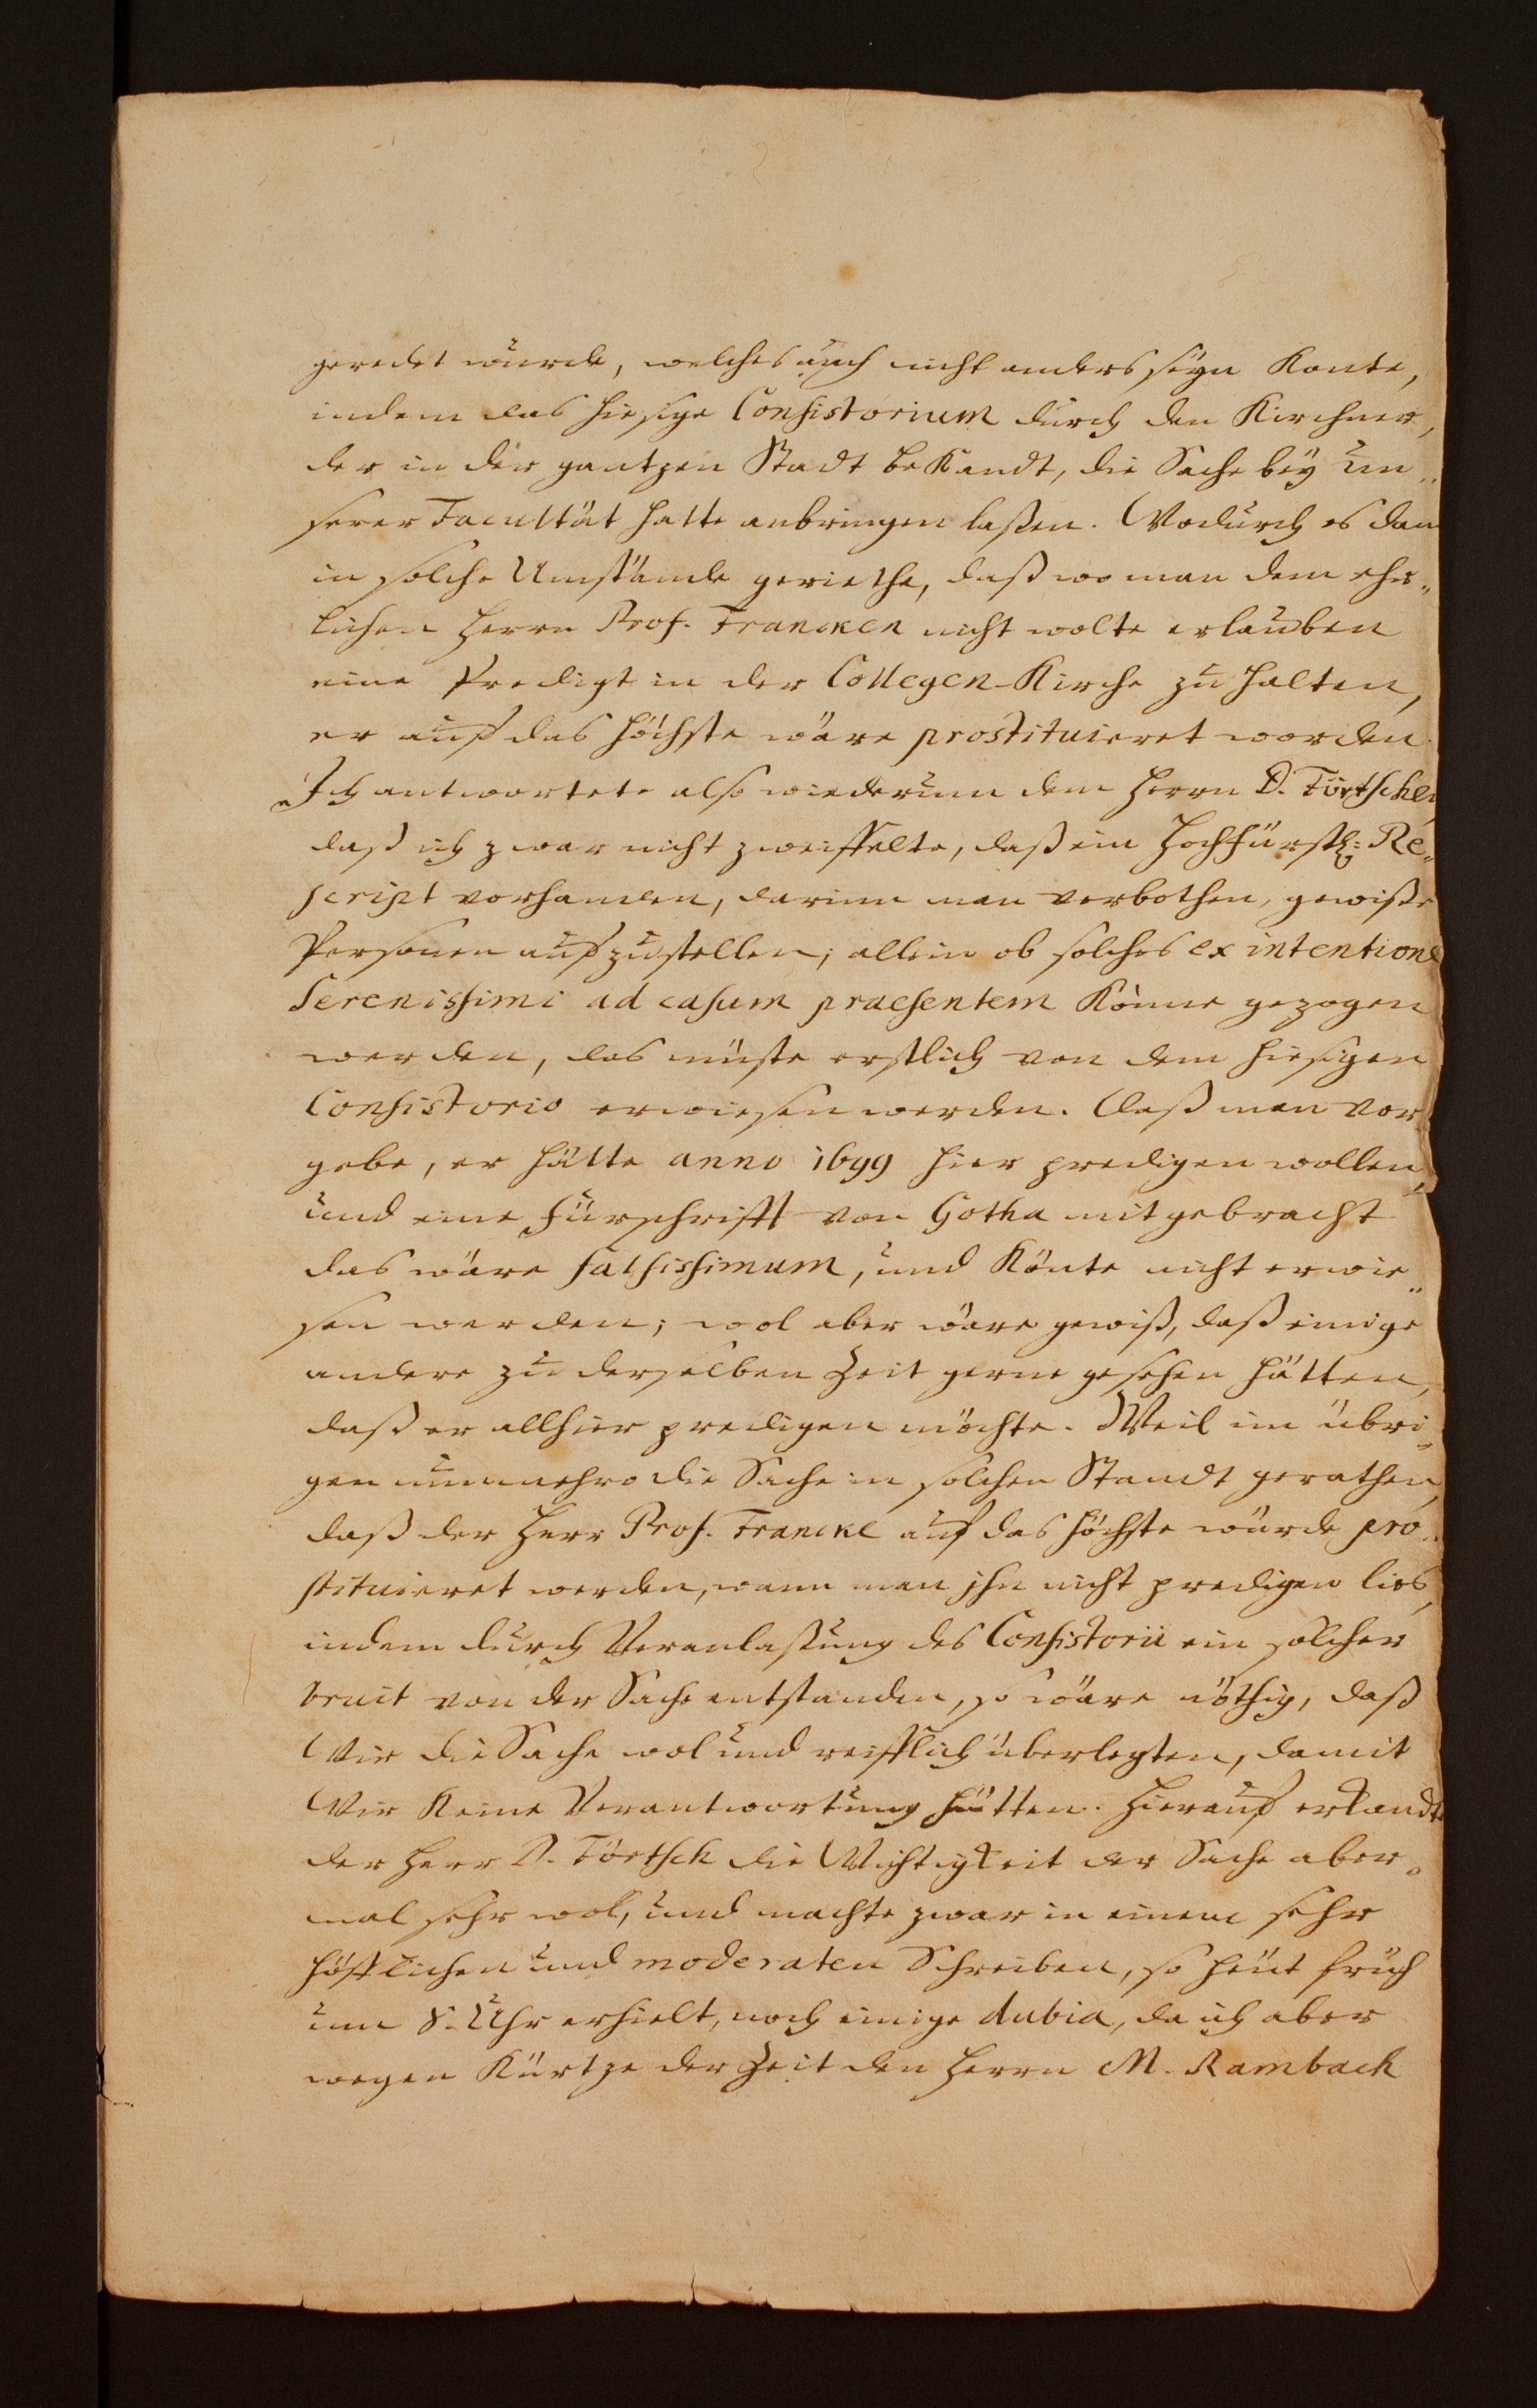 geredet wurde, welches auch nicht anders seyn Konte,
indem das hiesige Consistorium durch den Kirchner,
der in der gantzen Stadt beKandt, die Sache beÿ un„
serer Facultät hatte anbringen laßen. Wodurch es dan
in solche Umstände geriethe, daß wo man dem ehr„
lichen Herrn Prof. Francken nicht wolte erlauben
eine Predigt in der Collegen-Kirche zu halten,
er auf das höchste wäre prostituieret worden.
Ich antwortete also wiederumm dem Herrn D. Förtschen,
daß ich zwar nicht zweiffelte, daß ein Hochfürstl: Re„
script vorhanden, darinn man verbothen, gewiße
Personen aufzustellen; allein ob solches ex intentione
Serenissimi ad casum praesentem Könne gezogen
werden, das müste erstlich von dem hiesigen
Consistorio erwiesen werden. Daß man vor„
gebe, er hätte anno 1699 hier predigen wollen,
und eine Fürschrifft von Gotha mitgebracht
das wäre falsissimum, und Könte nicht erwie„
sen werden; wol aber wäre gewiß, daß einige
andere zu derselben Zeit gerne gesehen hätten,
daß er allhier predigen möchte. Weil im übri„
gen nunmehro die Sache in solchen Standt gerathen,
daß der Herr Prof. Francke auf das höchste würde pro„
stituieret werden, wann man ihn nicht predigen lies,
indem durch Veranlaßung des Consistorii ein solcher
bruit von der Sache entstanden, so wäre nöthig, daß
Wir die Sache wol und reifflich überlegten, damit
Wir Keine Verantwortung hätten. Hierauf erkandte
der Herr D. Förtsch die Wichtigkeit der Sache aber„
mal sehr wol, und machte zwar in einem sehr
höfflichen und moderaten Schreiben, so heut früh
um 8. Uhr erhielt, noch einige dubia, da ich aber
wegen Kürtze der Zeit den Herrn M. Rambach